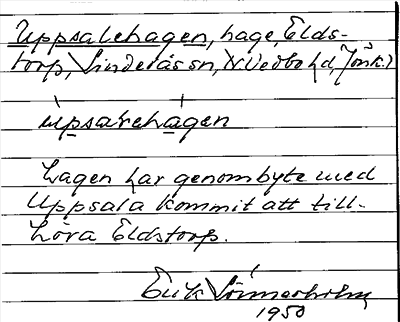 Uppsalehagen, hage, Elds-
torp, Linderås sn, N Vedbo hd, Jönk.)
upsalehagen
Hagen har genom byte med
Uppsala kommit att till-
höra Eldstorp.
Erik
1950